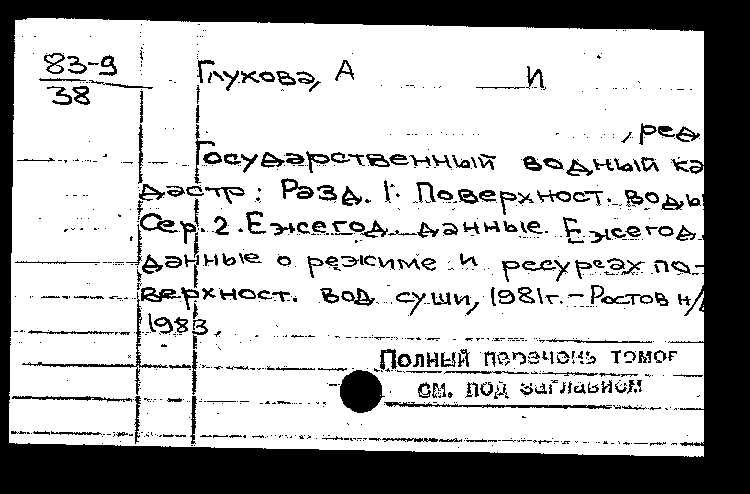 83-9
38
Глухова, А И
, ред
Государственный водный ка
дастр: Разд. 1. Поверхност. воды
Сер. 2. Ежегод. данные. Ежегод.
данные о режиме и ресурсах по-
верхност. вод суши, 1981г. - Ростов н/Д
1983.
Полный перечень томов
см. под заглавием